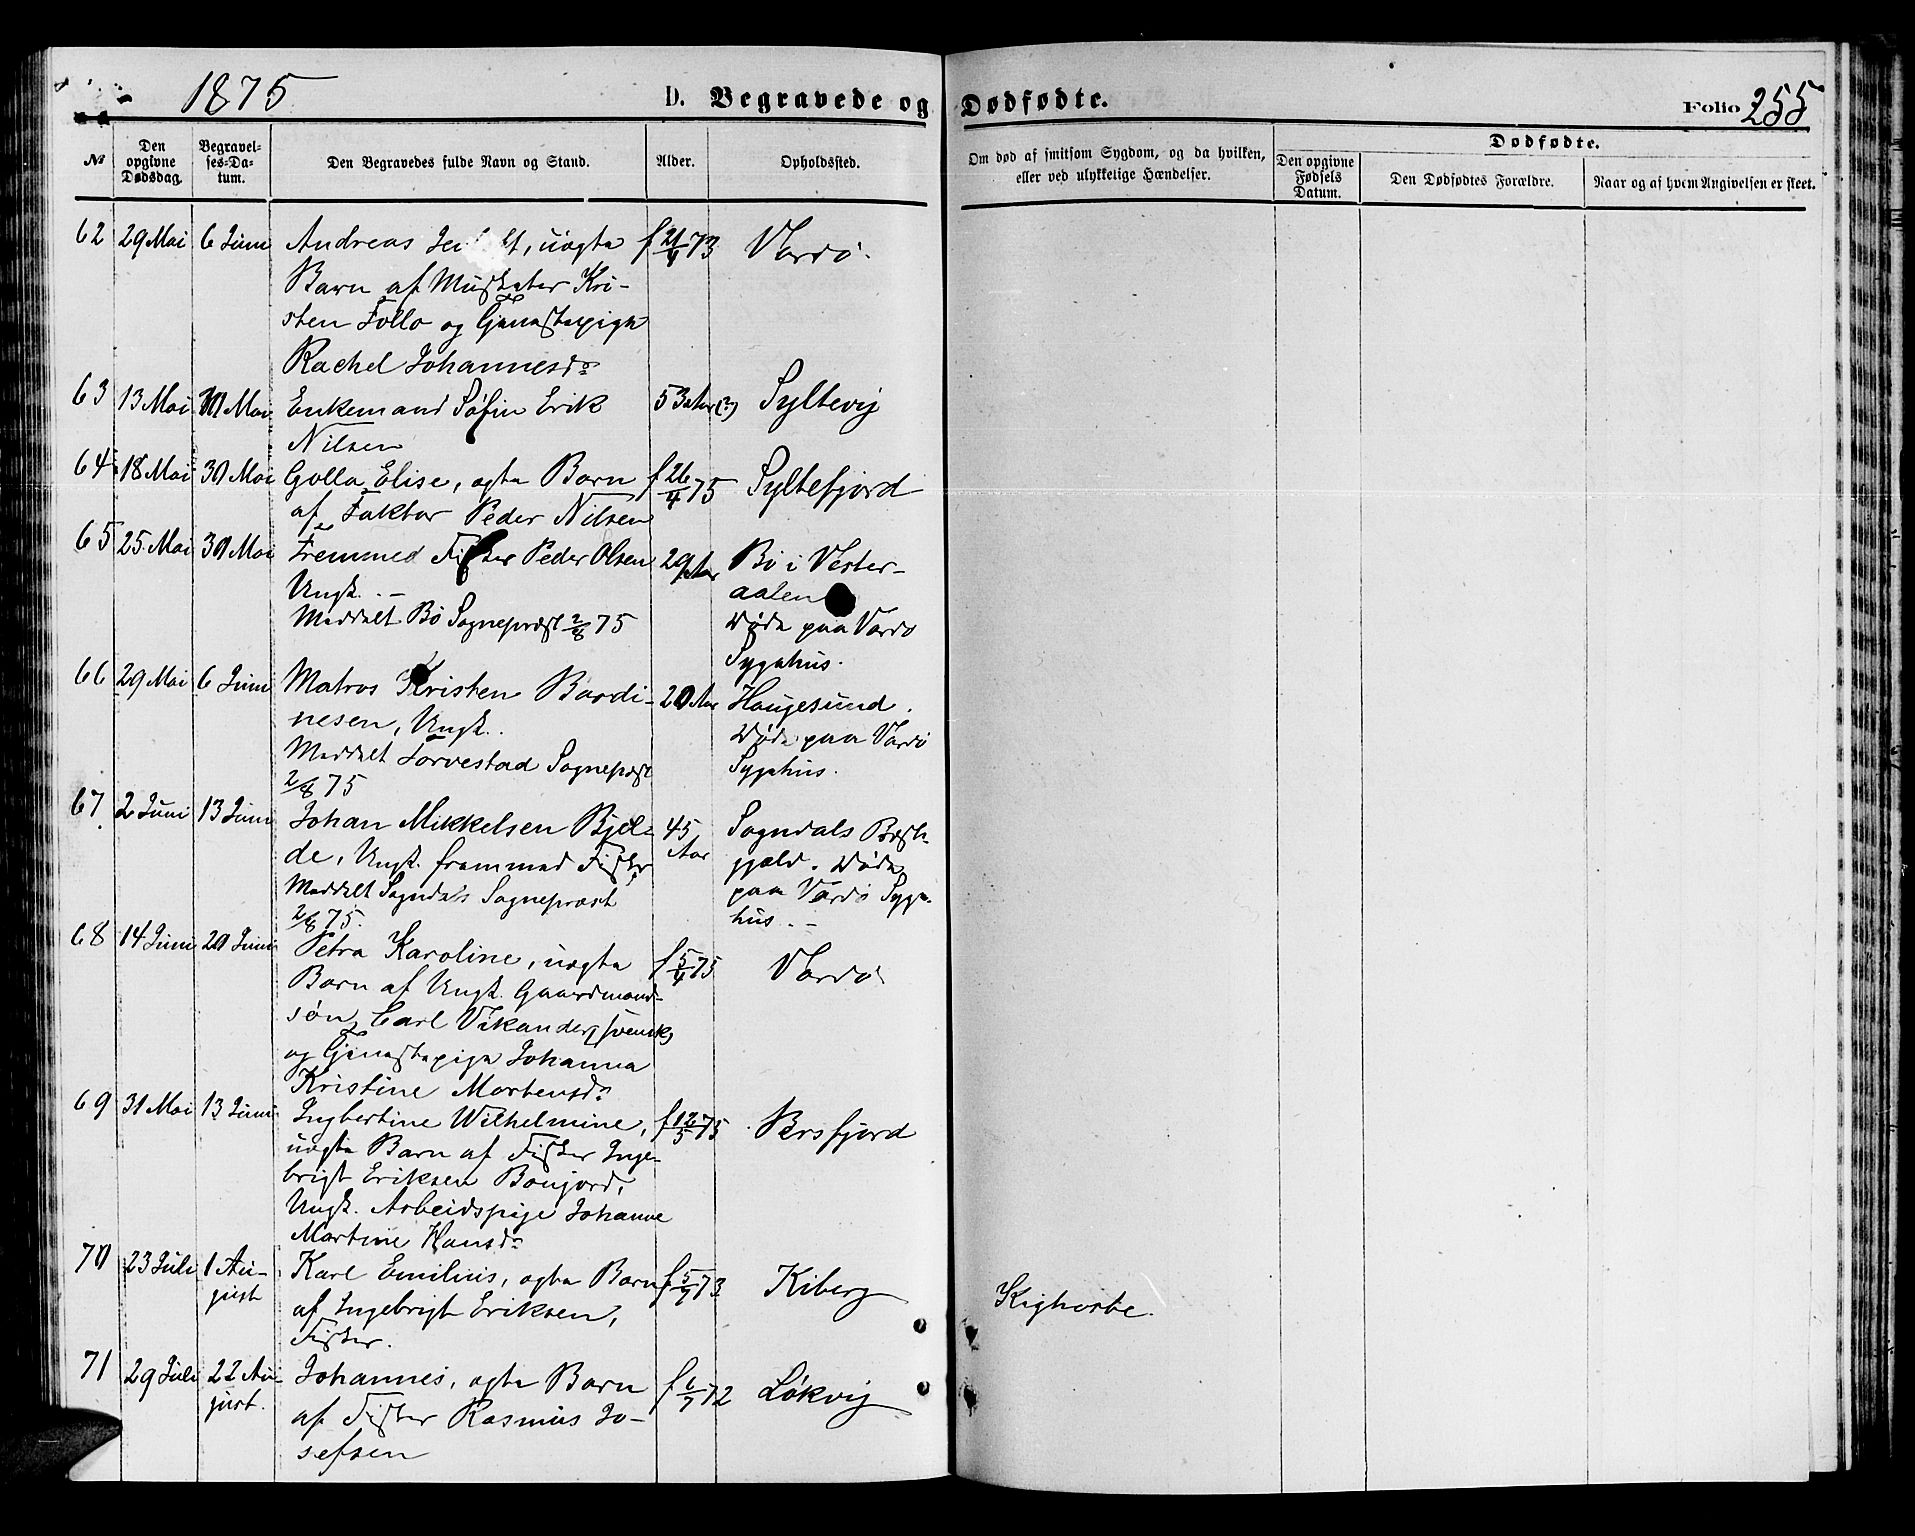 1875
D. Begravede og Dødfødte.
Folio 255
№
Den opgivne Dødsdag.
Begravelses-Datum.
Den Begravedes fulde Navn og Stand.
Alder.
Opholdssted.
Om død af smitsom Sygdom, og da hvilken,
eller ved ulykkelige Hændelser.
Dødfødte.
Den opgivne Fødsels Datum.
Den Dødfødtes Forældre.
Naar og af hvem Angivelsen er skeet.
62 29 Mai 6 Juni Andreas uægte f 21/4 73 Vardø.
Barn af Musketer Kri-
sten Follo og Tjenestepige
Rachel Johannesd:
63 13 Mai 30 Mai Enkemand Søfin Erik 53 Aar (?) Syltevig
Nilsen
64 18 Mai 30 Mai Golla Elise, ægte Barn f 26/4 75 Syltefjord
af Faktor Peder Nilsen
65 25 Mai 30 Mai Fremmed Fisker Peder Olsen 29 Aar Bø i Vester-
Ungk. - aalen
Meddelt Bø Sognepræst 2/8 75 Døde paa Vardø
Sygehus.
66 29 Mai 6 Juni Matros Kristen Bardi- 20 Aar Haugesund.
nesen, Ungk. Døde paa Vardø
Meddelt Torvestad Sognepræst Sygehus.
2/8 75
67 2 Juni 13 Juni Johan Mikkelsen Bjel- 45 Aar Sogndals Præste-
de, Ungk. fremmed Fisker gjæld. Døde
Meddelt Sogndals Sognepræst paa Vardø Syge-
2/8 75. hus. -
68 14 Juni 20 Juni Petra Karoline, uægte f 5/4 75 Vardø
Barn af Ungk. Gaardmand-
søn Carl Vikander (svensk)
og Tjenestepige Johanna
Kristine Mortensd:
69 31 Mai 13 Juni Ingbertine Wilhelmine, f 12/5 75 Persfjord
uægte Barn af Fisker Inge-
brigt Eriksen Bonjord,
Ungk. Arbeidspige Johanne
Martine Hansd:
70 23 Juli 1 Au- Karl Emilius, ægte Barn f 5/7 73 Kiberg Kighoste.
gust af Ingebrigt Eriksen,
Fisker.
71 29 Juli 22 Au- Johannes, ægte Barn f 6/7 72 Løkvig
gust. af Fisker Rasmus Jo-
sefsen